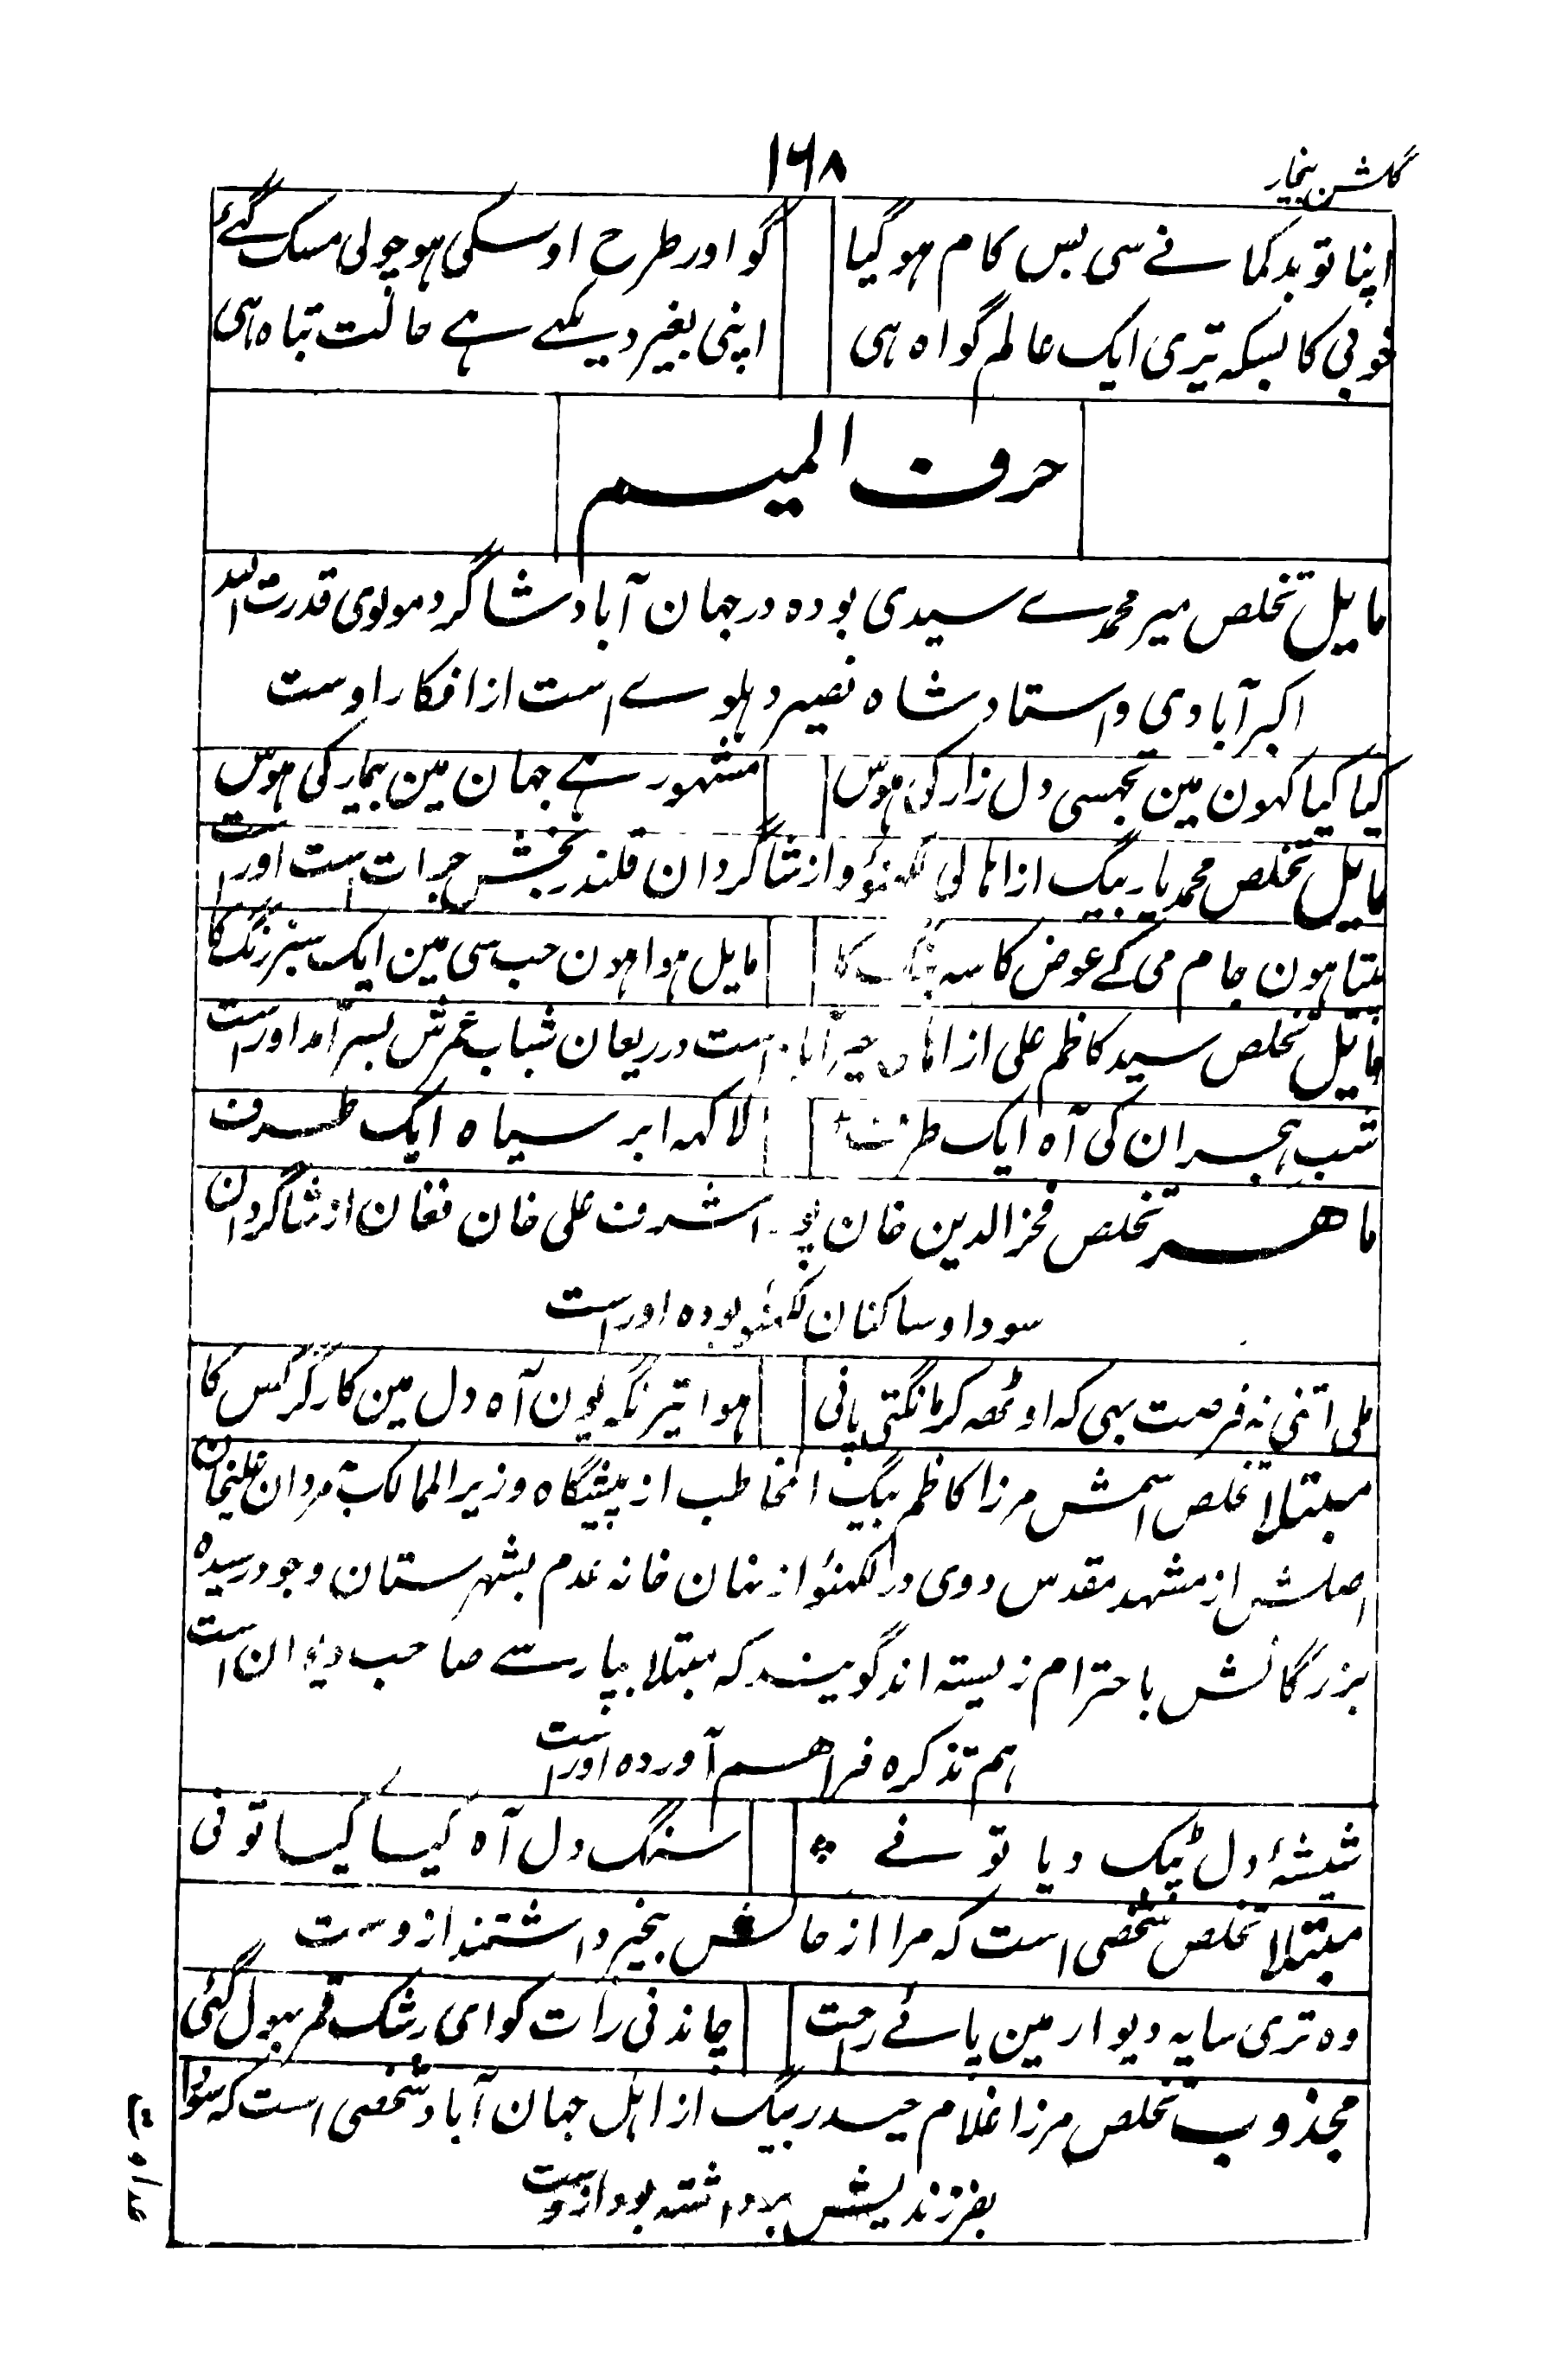 گلشن بیخار
۱۶۸
اپنا تو بدگمانے سی بس کام ہوگیا گو اور طرح اوسکی ہو چولی مسک گئے
خوبی کا بسکہ تیری ایک عالم گواہ ہی اپنی بغیر دیکہے ہے حالت تباہ ہی
حرف المیم
مایل تخلص میر محمدے سیدی بودہ در جہان آباد شاگرد مولوی قدرت اللہ
اکبرآبادی و استاد شاہ نصیر دہلوے است از افکار اوست
کیا کیا کہون مین تجہسی دل زار کی ہوس مشہور ہے جہان مین بیمار کی ہوس
مایل تخلص محمد یار بیگ از اہالی لکہنؤ و از شاگردان قلندر بخش جرات است اوراست
پیتا ہون جام می کے عوض کاسہ بنگ کا مایل ہوا ہون جب سی مین ایک سبز رنگ کا
مایل تخلص سید کاظم علی از اہالی آباد است در ریعان شباب عمرش بسر آمد اوراست
شب ہجران کی آہ ایک طرف لاکہہ ابر سیاہ ایک طرف
ماہر تخلص فخرالدین خان اشرف علی خان فغان از شاگردان
سودا و ساکنان لکہنؤ بودہ اوراست
ملی اتنی نہ فرصت بہی کہ اوٹھہ کر مانگتی پانی ہوا تیر نگہ یون آہ دل مین کارگر کس کا
مبتلا تخلص اسمش مرزا کاظم بیگ المخاطب از پیشگاہ وزیر الممالک بمردان علیخان
اصلش از مشہد مقدس و وی در لکہنؤ از نہان خانہ عدم بشہرستان وجود رسیدہ
بزرگانش باحترام زیستہ اند گویند کہ مبتلا بپارسے صاحب دیوان است
ہم تذکرہ فراہم آوردہ اوراست
شیشۂ دل پٹک دیا تو نے سنگدل آہ کیا کیا تو نی
مبتلا تخلص شخصی است کہ مرا از حالش بیخبر داشتند ازوست
وہ تری سایہ دیوار مین پائے راحت چاندنی رات کو ای رشک قمر بہول گئی
مجذوب تخلص مرزا غلام حیدر بیگ از اہل جہان آباد شخصی است کہ سودا
بفرزندیش برداشتہ بود ازوست